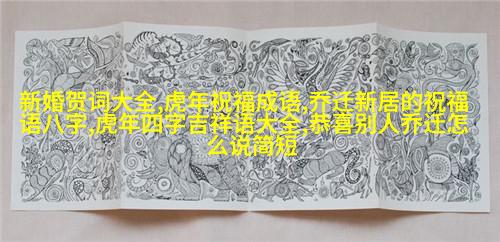 新婚贺词大全,虎年祝福成语,乔迁新居的祝福
语八字,虎年四字吉祥语大全,恭喜别人乔迁怎
么说简短